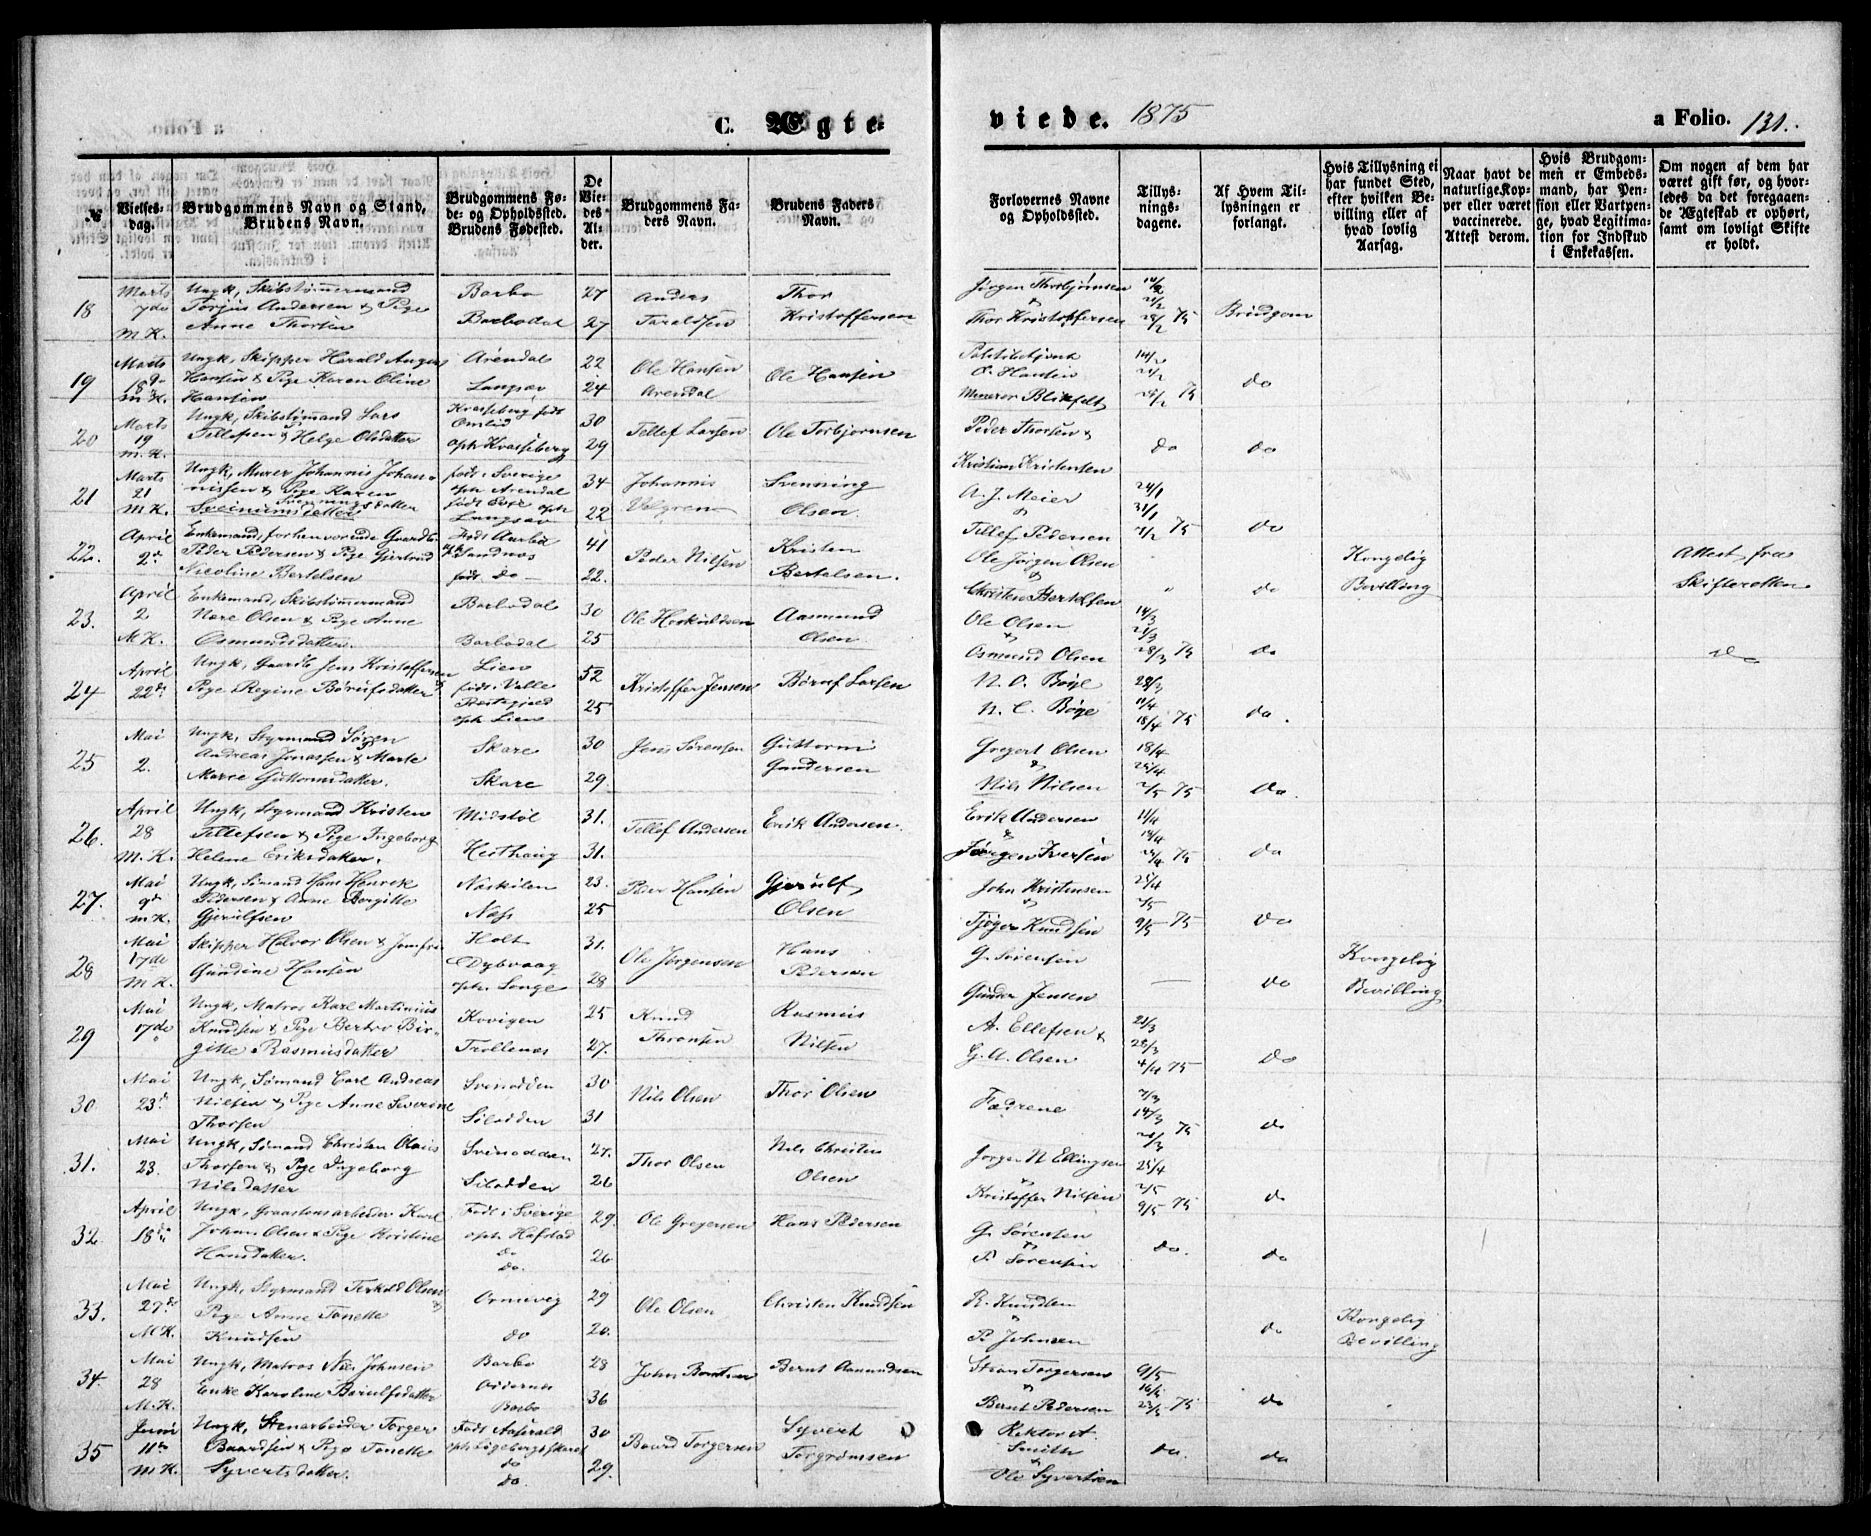 C. Ægte-
viede. 1875
a Folio. 131.
№
Vielses-
dag.
Brudgommens Navn og Stand,
Brudens Navn.
Brudgommens Fø-
de- og Opholdssted.
Brudens Fødested.
De
Vie-
des
Al-
der.
Brudgommens Fa-
ders Navn.
Brudens Faders
Navn.
Forlovernes Navne
og Opholdssted.
Tillys-
nings-
dagene.
Af Hvem Til-
lysningen er
forlangt.
Hvis Tillysning ei
har fundet Sted,
efter hvilken Be-
villing eller af
hvad lovlig
Aarsag.
Naar havt de
naturlige Kop-
per eller været
vaccinerede.
Attest derom.
Hvis Brudgom-
men er Embeds-
mand, har Pen-
sion eller Vartpen-
ge, hvad Legitima-
tion for Indskud
i Enkekassen.
Om nogen af dem har
været gift før, og hvor-
ledes da det foregaaen-
de Ægteskab er ophørt,
samt om lovligt Skifte
er holdt.
18 Marts 7de M.K. Ungk, Skibstømmermand
Torjus Andersen & Pige
Anne Thorsen
Barbo 27
Barbodal 27
Anders Taraldsen
Thor Kristoffersen
Jørgen Thorbjørnsen
&
Thor Kristoffersen
14/2 21/2 28/2 75
Brudgom
19 Marts 18de M.K. Ungk, Skipper Harald August
Hansen & Pige Karen Oline
Hansen
Arendal 22
Langsæv 24
Ole Hansen Arendal
Ole Hansen
O. Hansen
Blikfelt
14/2 21/2 28/2 75
do
20 Marts 19 M.K. Ungk, Skibstømmand Lars
Tellefsen & Helge Olsdatter
Krasseberg født
30
oph Krasseberg 29
Tellef Larsen
Ole Torbjørnsen
Peder Thorsen &
Kristian Kristensen
do
do
21 Marts 21 M.K. Ungk, Murer Johannis Johan-
nissen & Pige Karen
Svennings datter
født i Sverige
oph Arendal 34
født Evje oph
Langsæv 22
Johannis
Svenning Olsen
A. J. Meier
Tellef Pedersen
24/1 31/1 7/2 75
do
22. April 2d Enkemand, forhenværende Gaardb.
Peder Pedersen & Pige Gjertrud
Nicoline Bertelsen
Sandnæs 41
født do 22.
Peder Nilsen
Kristen Bertelsen.
Ole Jørgen Olsen
&
Christen Bertelsen
"
do
Kongelig
Bevilling
Attest fra
Skifteretten
23. April 2 M.K. Enkemand, Skibstømmermand
Nære Olsen & Pige Anne
Osmundsdatter.
Barbodal 30
Barbodal 25
Ole Hoskuldsen
Aasmund Olsen
Ole Olsen
&
Osmund Olsen
14/3 21/3 28/3 75
do
do
24 April 22de Ungk, Gaardb Jens Kristoffersen &
Pige Regine Børufsdatter
Lien 52
født i Valle
oph Lien 25
Kristoffer Jensen
Børuf Larsen
N. O. Bøye
N. C. Bøye
28/3 11/4 18/4 75
do.
25 Mai 2. Ungk, Styrmand Søren
Andreas Jonassen & Marte
Marie Guttormsdatter.
Skare 30
Skare 29.
Jens Sørensen
Guttorm Gundersen
Gregert Olsen
&
Nils Nilsen
18/4 25/4 2/5 75
do.
26. April 28 M.K. Ungk, Styrmand Kristen
Tellefsen & Pige Ingeborg
Helene Eriksdatter.
Midstøl 31.
Heithaug 31.
Tellef Andersen
Erik Andersen.
Erik Andersen
&
Jørgen Iversen
11/4 18/4 25/4 75
do
27. Mai 9de M.K. Ungk, Sømand Hans Henrik
Pedersen & Anne Bergitte
Gjerulfsen
Næskilen 23.
Næs 25
Peder Hansen
Gjerulf Olsen
John Kristensen
&
Tjøger Knudsen
25/4 2/5 9/5 75
do
28 Mai 17de M.K. Skipper Halvor Olsen & Jomfru
Gundine Hansen
Holt 31.
Dybvaag
oph. Songe 28
Ole Jørgensen
Hans Pedersen
G. Sørensen
Gunder Jensen
—
do
Kongelig
Bevilling
29 Mai 17de Ungk, Matros Karl Martinius
Knudsen & Pige Bertro Bir-
gitte Rasmusdatter
Kovigen 25
Trollenæs 27.
Knud Thronsen
Rasmus Nilsen
A. Ellefsen &
G. A. Olsen
21/3 28/3 4/4 75
do
30 Mai 23d. Ungk, Sømand Carl Andreas
Nilsen & Pige Anne Severine
Thorsen
Svinodden 30
Silodden 31
Nils Olsen
Thor Olsen
Fædrene
7/3 14/3 21/3 75
do
31. Mai 23. Ungk, Sømand Christen Olaus
Thorsen & Pige Ingeborg
Nilsdatter
Svinodden 27.
Silodden 26
Thor Olsen
Nils Christen Olsen
Jørgen N Ellingsen
&
Kristoffer Nilsen
25/4 2/5 9/5 75
do
32 April 18de Ungk, Graastensarbeider Karl
Johan Olsen & Pige Kristine
Hansdatter.
Født i Sverige 29.
oph. Hafstad
do
do. 26
Ole Gregersen
Hans Pedersen
G. Sørensen
&
P. Sørensen
do.
do
33. Mai 27de M.K. Ungk, Styrmand Terkild Olsen &
Pige Anne Tonette
Knudsen
Ormevig 29
do 20.
Ole Olsen
Christen Knudsen
R. Knudsen
"
P. Johnsen
—
do
Kongelig
Bevilling
34. Mai 28 M.K. Ungk, Matros Nils Johnsen
Enke Karoline Børulfsdatter
Barbo 28
Barbo 36
John Berntsen
Bernt Aanundsen
Stian Torgersen
&
Bernt Pedersen
9/5 16/5 23/5 75
do
35 Juni 11te M.K. Ungk, Stenarbeider Torger
Baardsen & Pige Tonette
Syvertsdatter.
Født Aaseral 30
do
do 29.
Baard Torgersen
Syvert Torgrimsen
Rektor A.
Smith
&
Ole Syvertsen
do.
do